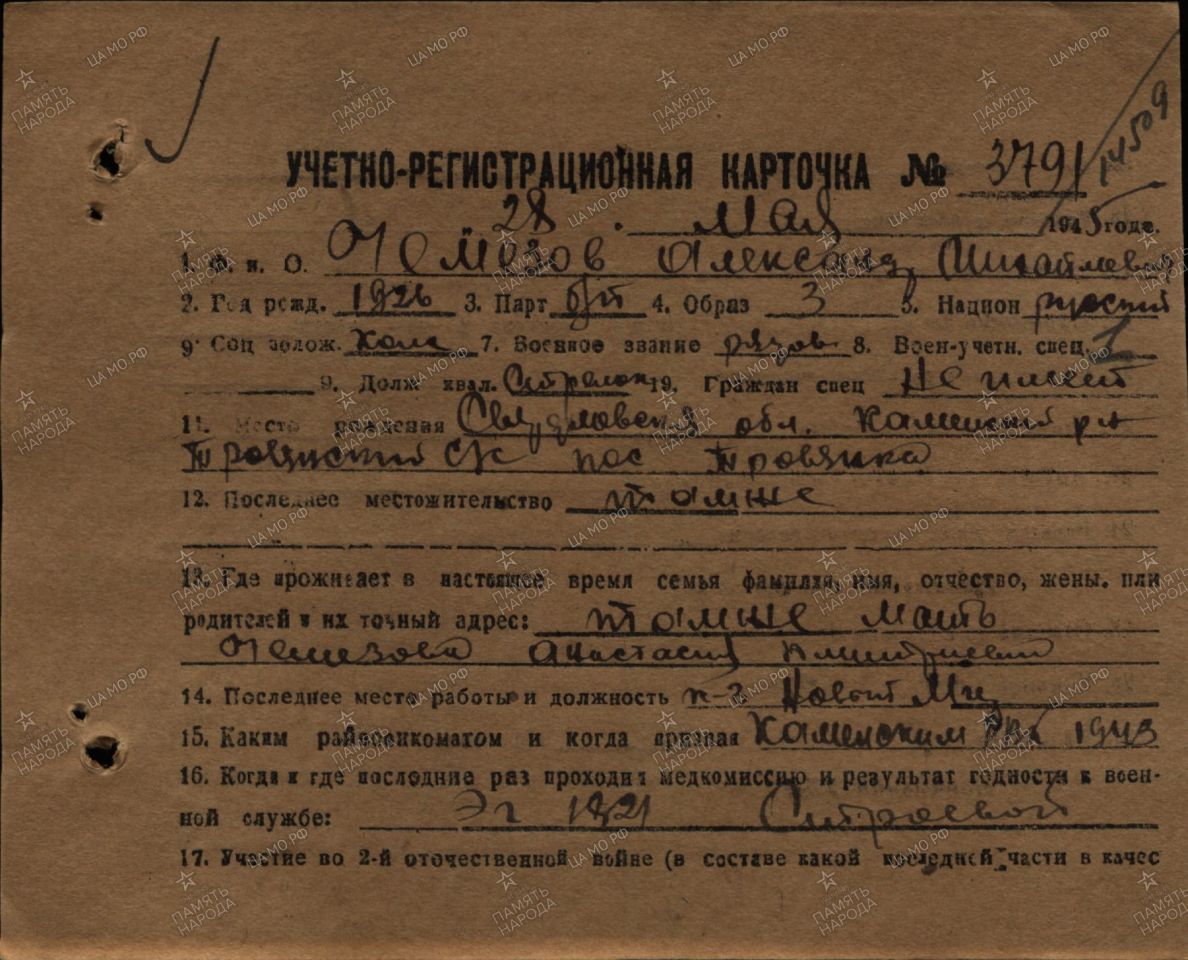 14509
УЧЕТНО-РЕГИСТРАЦИОННАЯ КАРТОЧКА № 3791
28 . Мая 1945 годе.
1. Ф. и. О. Чемезов Александ Михайлович
2. Год рожд. 1926 3. Парт б/п 4. Образ 3 5. Национ русский
9. Соц полож. Колх 7. Военное звание рядов. 8. Воен-учетн. спец. 1
9. Долж квал. Стрелок 19. Граждан спец Не имеет
11. Место рождения Свердловская обл. Каменский р-н
Травянский С/С пос Травянка
12. Последнее местожительство там же
13. Где проживает в настоящее время семья фамилия, имя, отчество, жены. или
родителей и их точный адрес: там же мать
Чемезова Анастасия Дмитриевна
14. Последнее место работы и должность к-з Новый
15. Каким райвоенкоматом и когда призван Каменским РВК 1943
16. Когда и где последние раз проходил медкомиссию и результат годности к воен-
ной службе: Эг Строевой
17. Участие во 2-й оточественной войне (в составе какой последней части в качес
ЦА МО РФ
ПАМЯТЬ НАРОДА